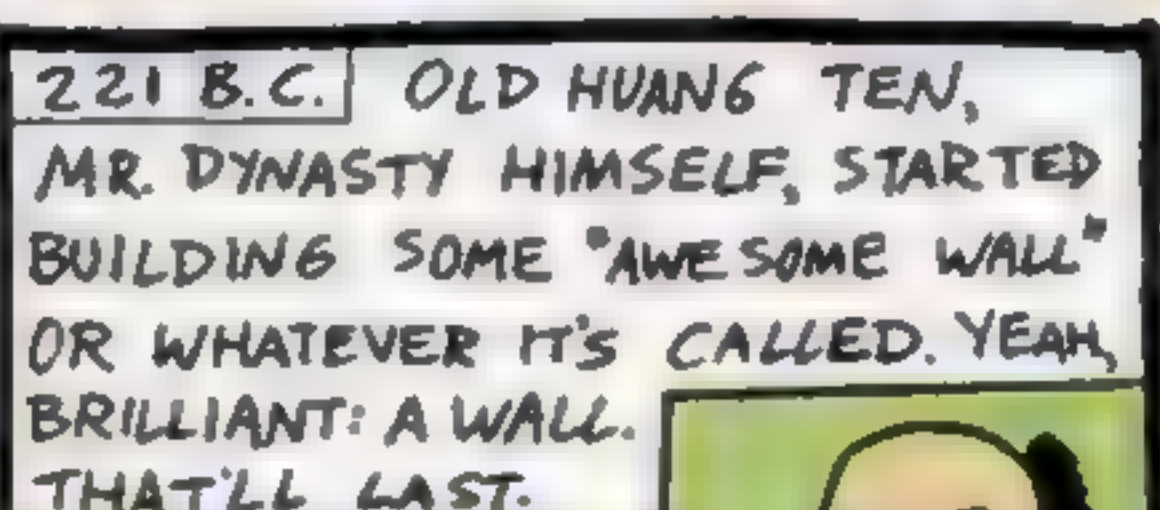 221 B.C. OLD HUANG TEN,
MR. DYNASTY HIMSELF, STARTED
BUILDING SOME "AWESOME WALL"
OR WHATEVER IT'S CALLED. YEAH,
BRILLIANT: A WALL.
THAT'LL LAST.